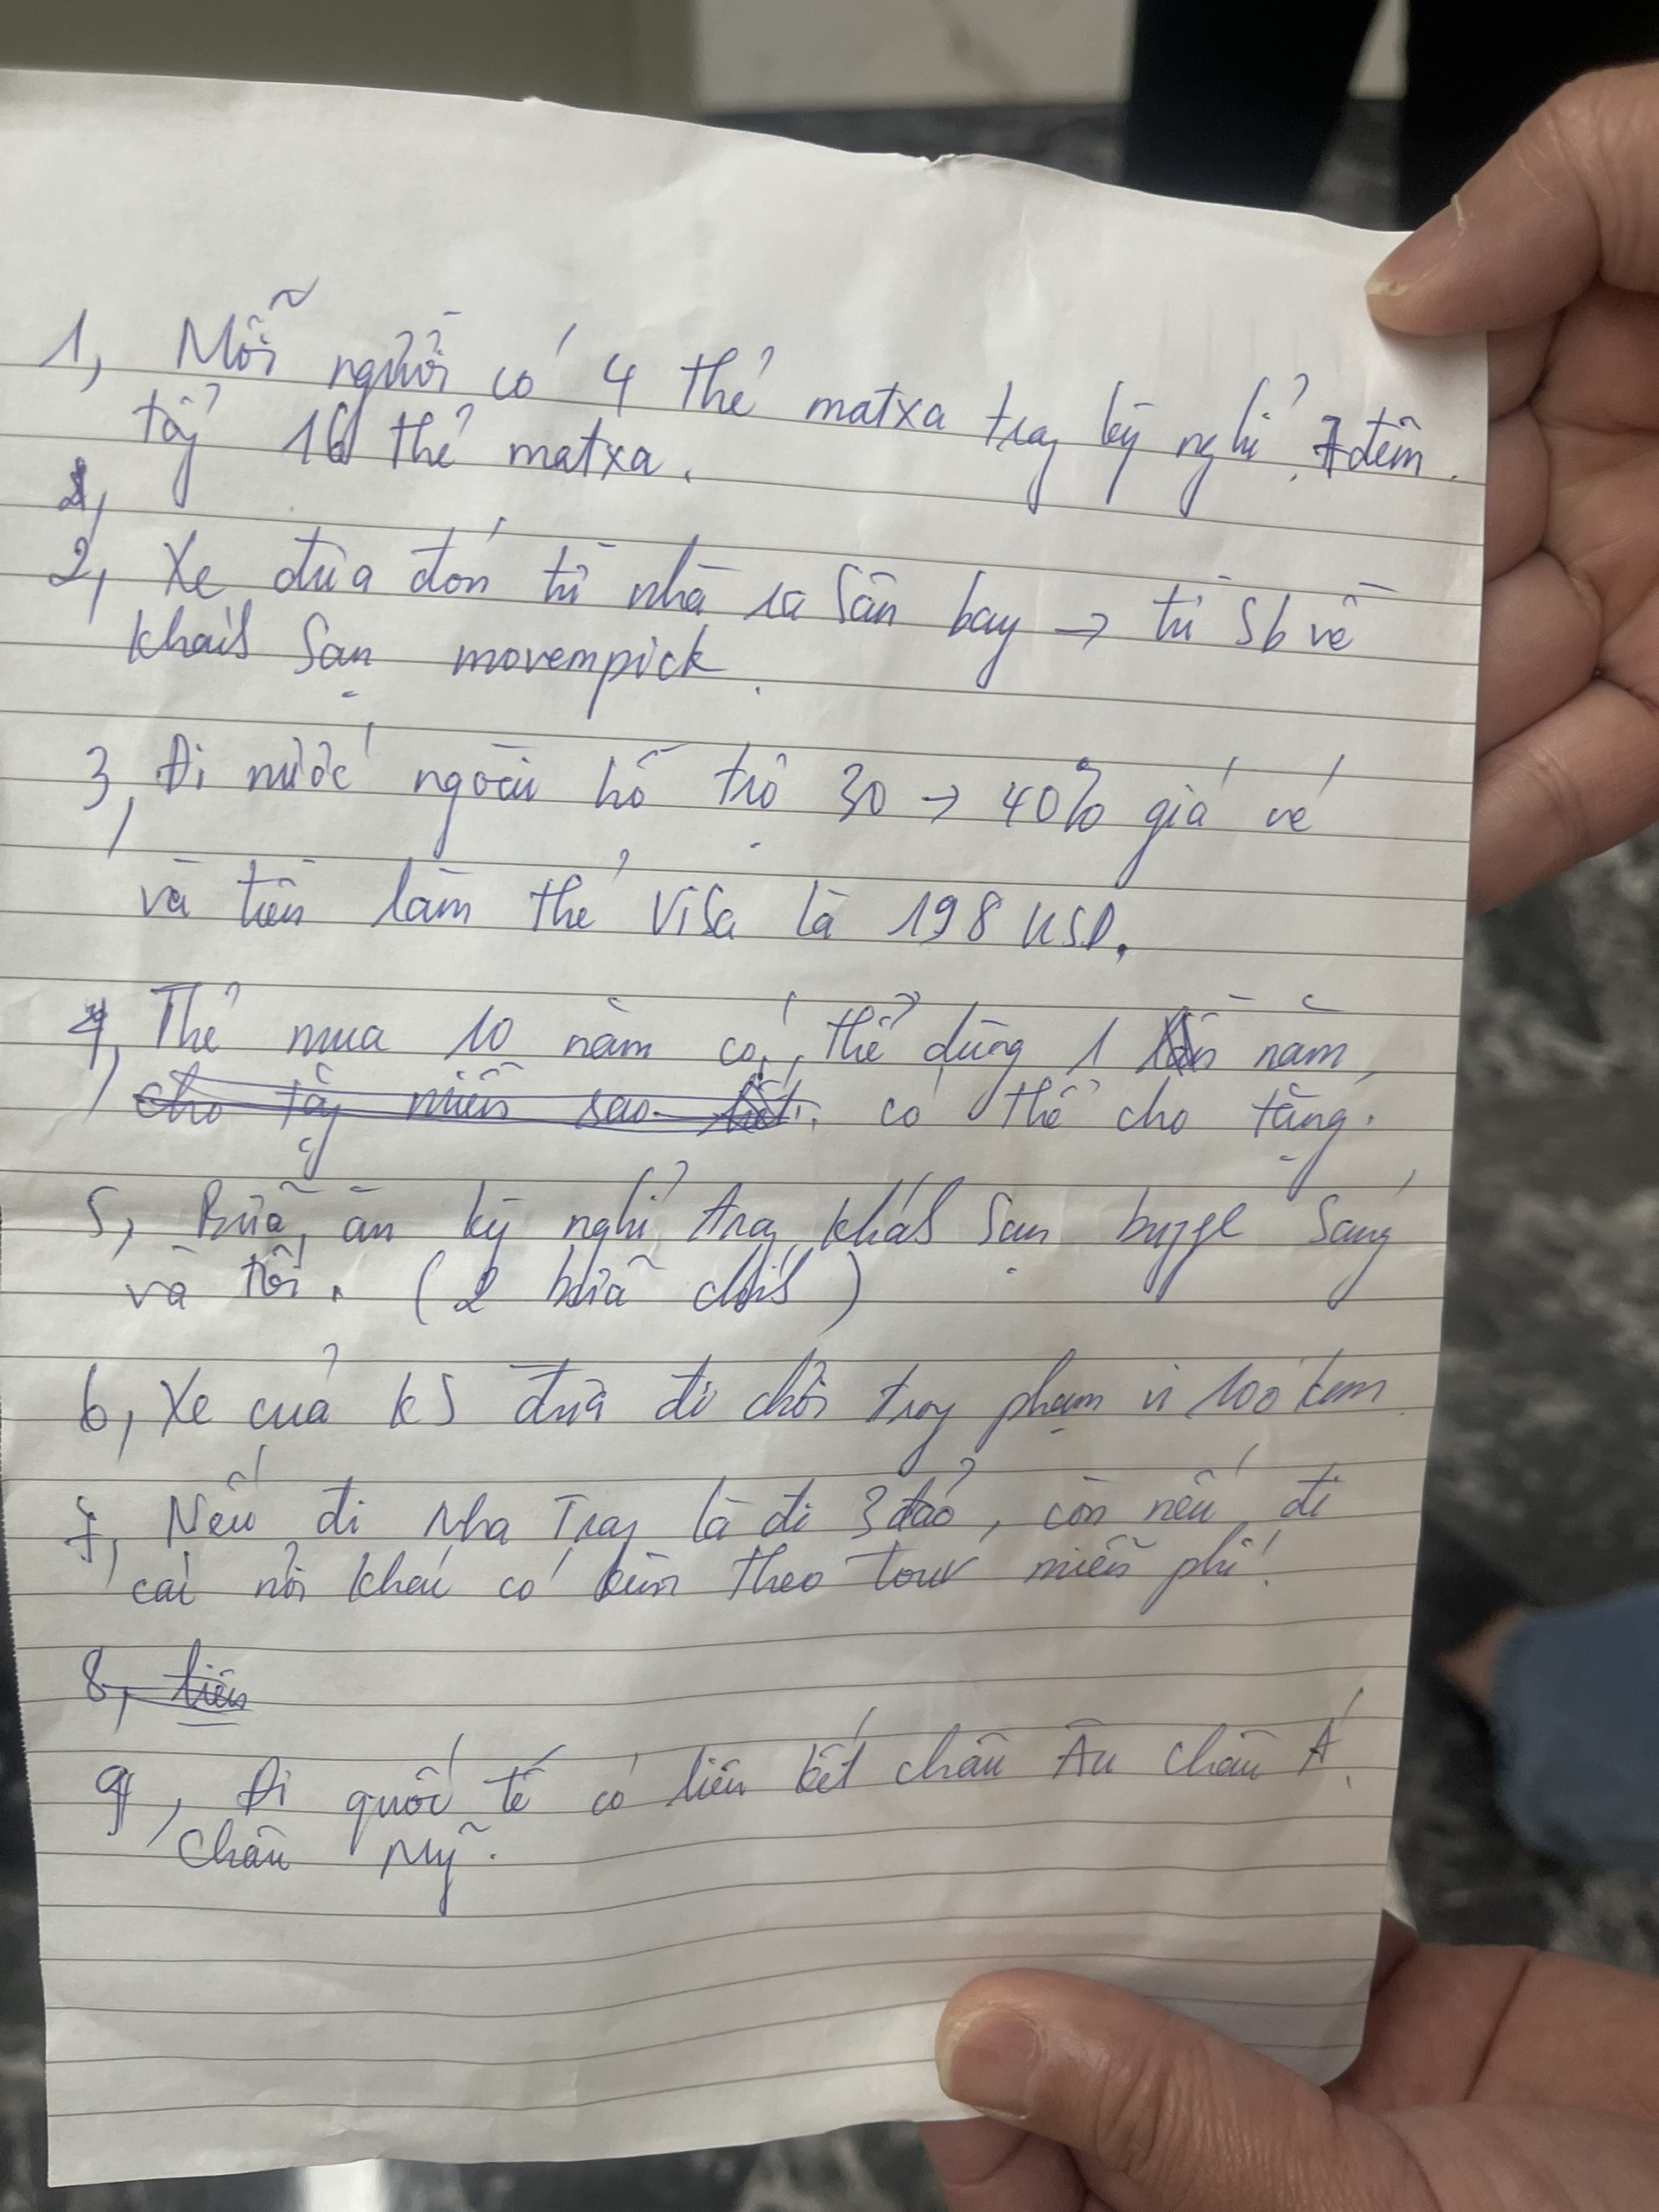 1, Mỗi người có 4 thẻ matxa trog kỳ nghỉ 7 đêm.
tổg 16 thẻ matxa.
2, Xe đưa đón từ nhà ra sân bay → từ Sb về
khách Sạn movempick.
3, Đi nước ngoài hỗ trợ 30 → 40% giá vé
và tiền làm thẻ Visa là 198 USD.
4, Thẻ mua 10 năm có thể dùng 1 năm
có thể cho tặng.
5, Bữa ăn kỳ nghỉ trog khách Sạn Sáng
và tối. (2 bữa chíh)
6, Xe của KS đưa đi chơi trog phạm vi 100 km
7, Nếu đi Nha Trag là đi 3 đảo, còn nếu đi
cái nơi khác có kèm theo tour miễn phí!
8, tiền
9, Đi quốc tế có liên kết châu Âu châu Á,
Châu Mỹ.